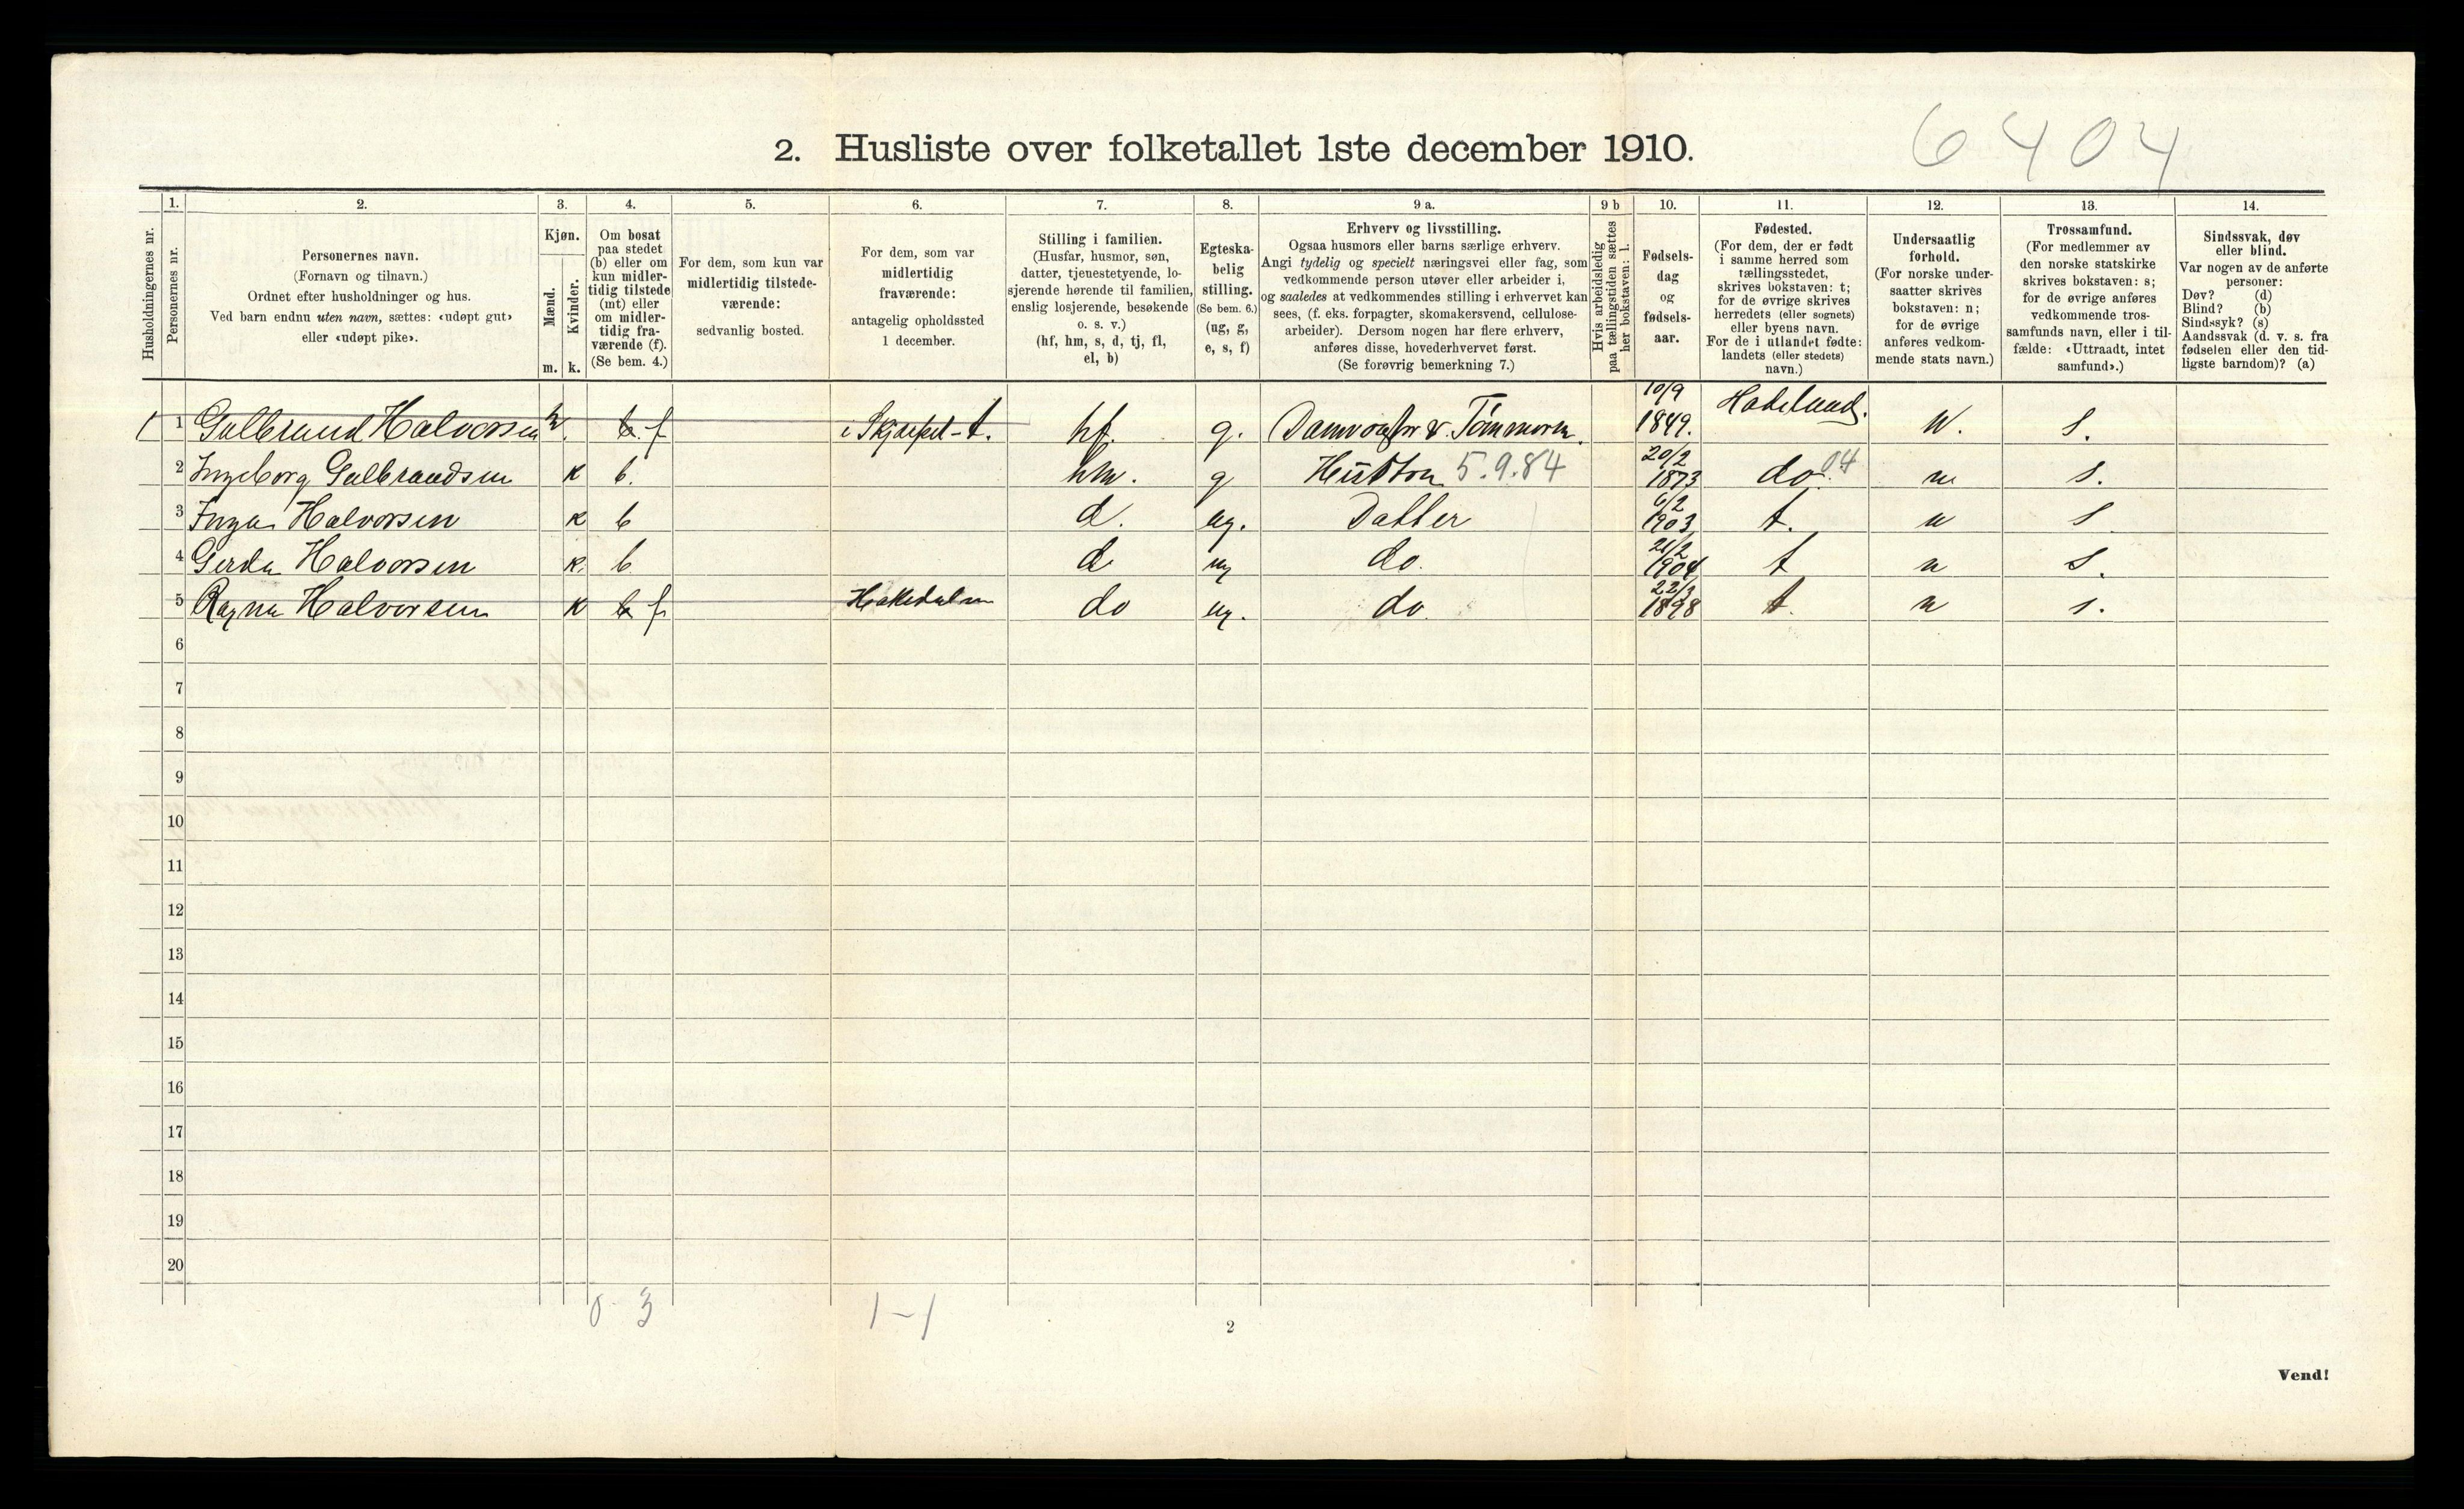 2. Husliste over folketallet 1ste december 1910.
6404
Husholdningernes nr.
1.
Personernes nr.
2.
Personernes navn.
(Fornavn og tilnavn.)
Ordnet efter husholdninger og hus.
Ved barn endnu uten navn, sættes: «udøpt gut»
eller «udøpt pike».
3.
Kjøn.
Mænd.
Kvinder.
m. k.
4.
Om bosat
paa stedet
(b) eller om
kun midler-
tidig tilstede
(mt) eller
om midler-
tidig fra-
værende (f).
(Se bem. 4.)
5.
For dem, som kun var
midlertidig tilstede-
værende:
sedvanlig bosted.
6.
For dem, som var
midlertidig
fraværende:
antagelig opholdssted
1 december.
7.
Stilling i familien.
(Husfar, husmor, søn,
datter, tjenestetyende, lo-
sjerende hørende til familien,
enslig losjerende, besøkende
o. s. v.)
(hf, hm, s, d, tj, fl,
el, b)
8.
Egteska-
belig
stilling.
(Se bem. 6.)
(ng, g,
e, s, f)
9 a.
Erhverv og livsstilling.
Ogsaa husmors eller barns særlige erhverv.
Angi tydelig og specielt næringsvei eller fag, som
vedkommende person utøver eller arbeider i,
og saaledes at vedkommendes stilling i erhvervet kan
sees, (f. eks. forpagter, skomakersvend, cellulose-
arbeider). Dersom nogen har flere erhverv,
anføres disse, hovederhvervet først.
(Se forøvrig bemerkning 7.)
9 b
Hvis arbeidsledig
paa tællingstiden sættes
her bokstaven: l.
10.
Fødsels-
dag
og
fødsels-
aar.
11.
Fødested.
(For dem, der er født
i samme herred som
tællingsstedet,
skrives bokstaven: t;
for de øvrige skrives
herredets (eller sognets)
eller byens navn.
For de i utlandet fødte:
landets (eller stedets)
navn.)
12.
Undersaatlig
forhold.
(For norske under-
saatter skrives
bokstaven: n;
for de øvrige
anføres vedkom-
mende stats navn.)
13.
Trossamfund.
(For medlemmer av
den norske statskirke
skrives bokstaven: s;
for de øvrige anføres
vedkommende tros-
samfunds navn, eller i til-
fælde: «Uttraadt, intet
samfund».)
14.
Sindssvak, døv
eller blind.
Var nogen av de anførte
personer:
Døv? (d)
Blind? (b)
Sindssyk? (s)
Aandssvak (d. v. s. fra
fødselen eller den tid-
ligste barndom)? (a)
1 Gulbrand Halvorsen b. f i t. hf. g. v. 10/9 1849. Hadeland. n. s.
2 Ingeborg Gulbrandsen k b. hm. g Hustru 5.9.84 20/2 1873 do. 04 n s.
3 Inga Halvorsen k b d. ug. Datter 6/2 1903 t. n s
4 Gerda Halvorsen k. b d ug do. 21/2 1904 t n s.
5 Ragna Halvorsen k b f Hakedalen do ug. do. 22/3 1898 t. n s.
6
7
8
9
10
11
12
13
14
15
16
17
18
19
20
0 3
1 – 1
2
Vend!